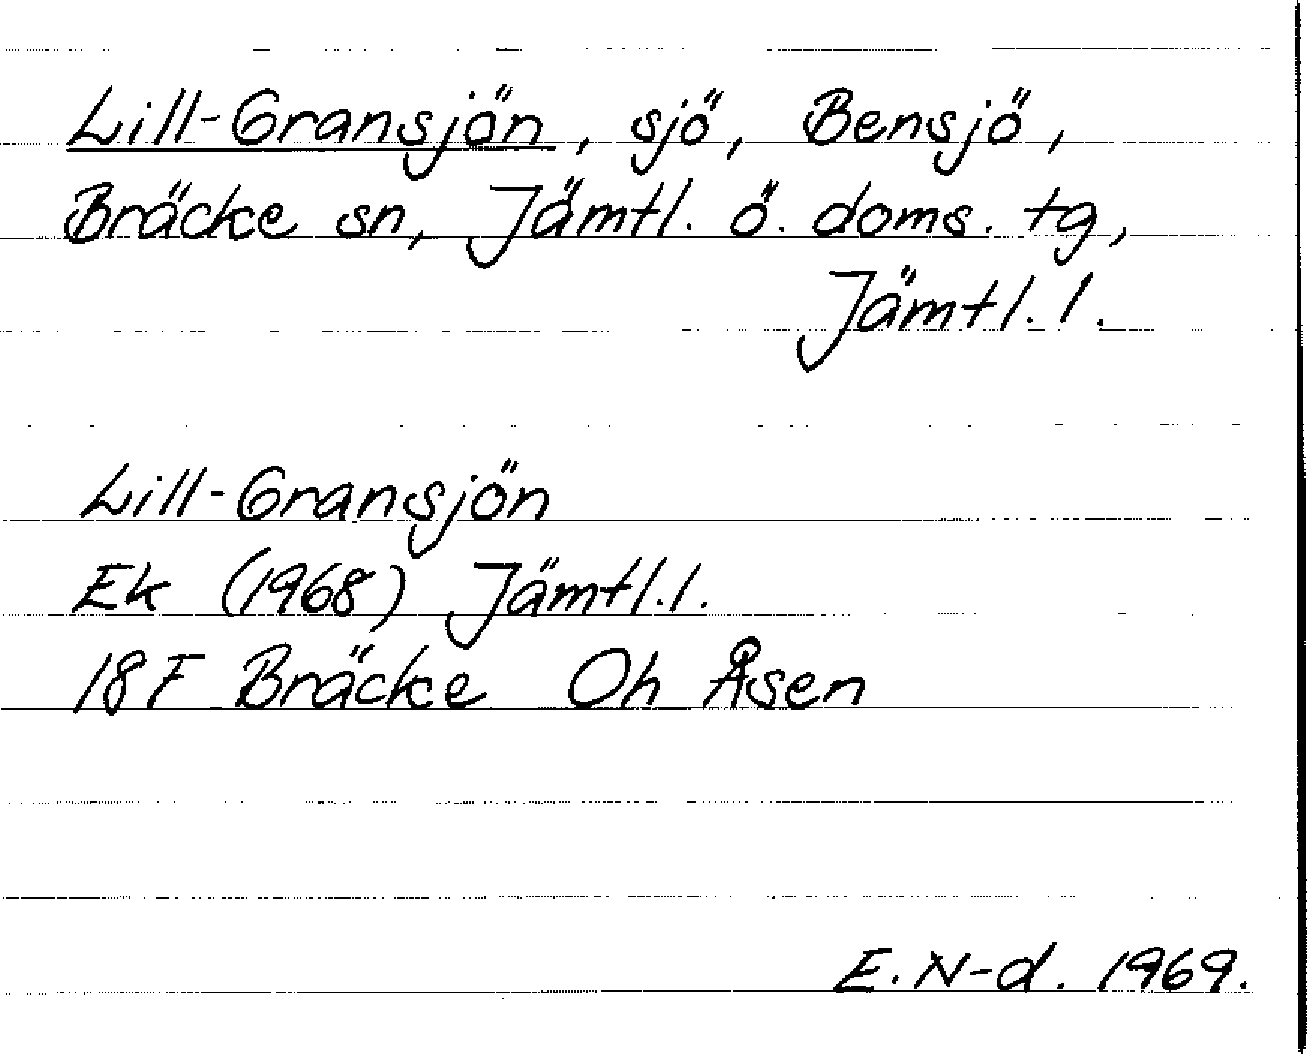 Lill-Gransjön, sjö, Bensjö,
Bräcke sn, Jämtl. ö. doms. tg,
Jämtl. l.
Lill-Gransjön
Ek (1968) Jämtl. l.
18F Bräcke Oh Åsen
E. N-d. 1969.